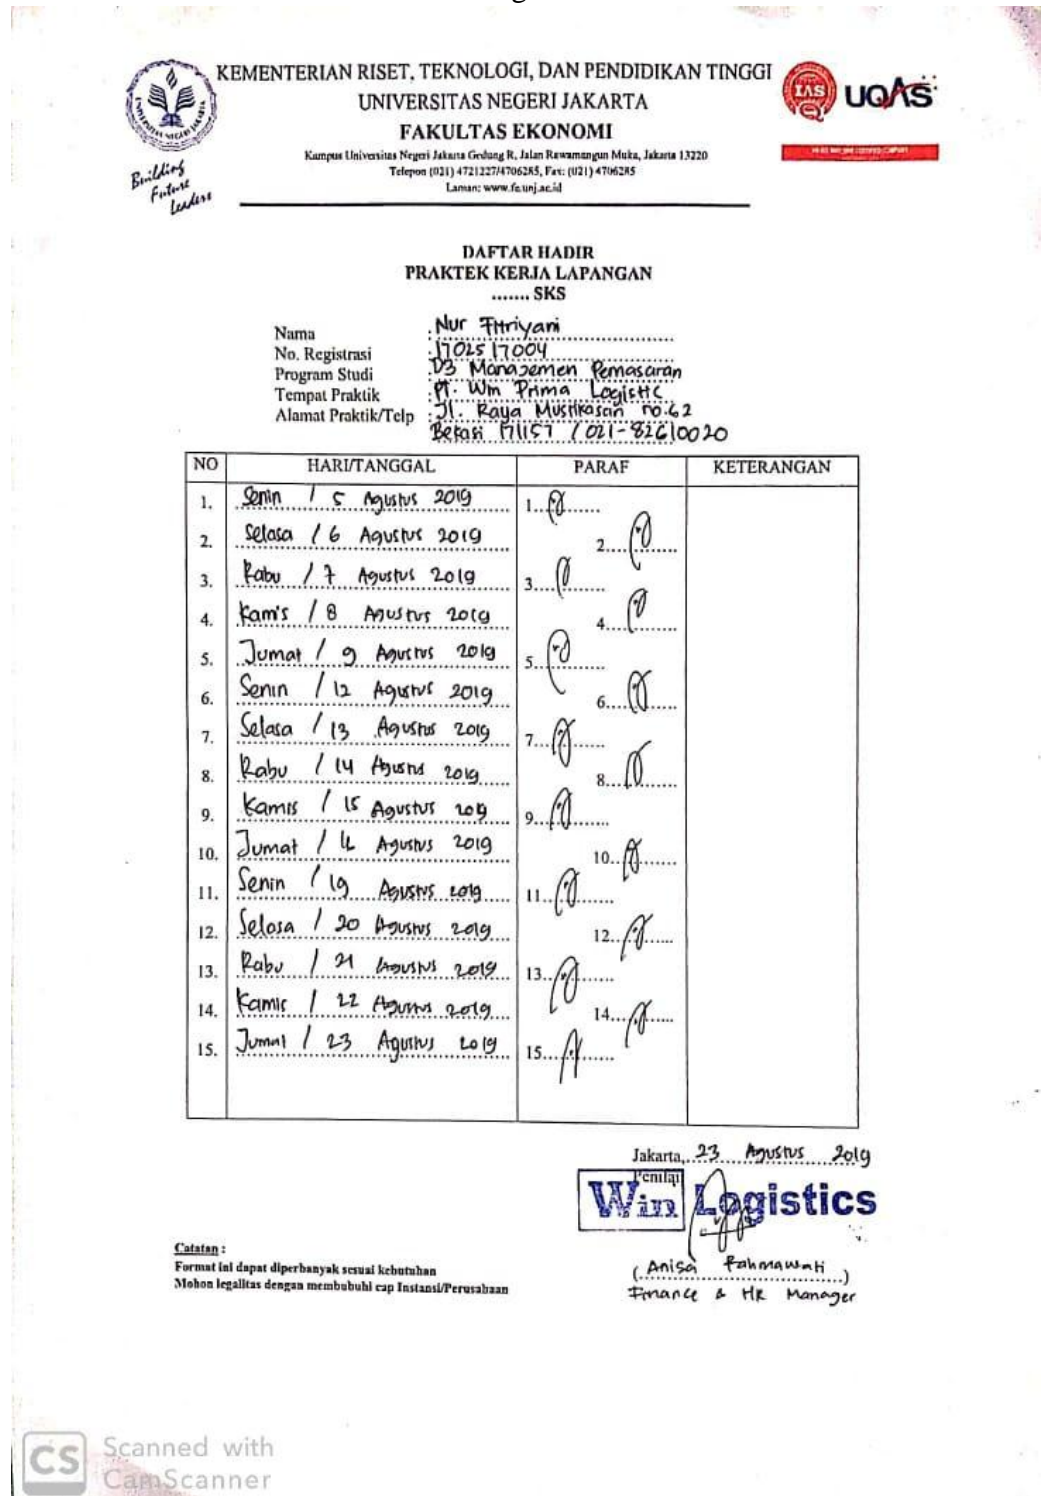 KEMENTERIAN RISET, TEKNOLOGI, DAN PENDIDIKAN TINGGI
UNIVERSITAS NEGERI JAKARTA
FAKULTAS EKONOMI
Kampus Universitas Negeri Jakarta Gedung R, Jalan Rawamangun Muka, Jakarta 13220
Telepon (021) 4721227/4706285, Fax: (021) 4706285
Laman: www.fe.unj.ac.id
Building
Future
Leaders
IAS
UQAS
DAFTAR HADIR
PRAKTEK KERJA LAPANGAN
....... SKS
Nama : Nur Fitriyani
No. Registrasi : 1702517004
Program Studi : D3 Manajemen Pemasaran
Tempat Praktik : PT. Win Prima Logistic
Alamat Praktik/Telp : Jl. Raya Mustikasari no.62
Bekasi 17157 / 021-82610020
NO HARI/TANGGAL PARAF KETERANGAN
1. Senin / 5 Agustus 2019 1.
2. Selasa / 6 Agustus 2019 2.
3. Rabu / 7 Agustus 2019 3.
4. Kamis / 8 Agustus 2019 4.
5. Jumat / 9 Agustus 2019 5.
6. Senin / 12 Agustus 2019 6.
7. Selasa / 13 Agustus 2019 7.
8. Rabu / 14 Agustus 2019 8.
9. Kamis / 15 Agustus 2019 9.
10. Jumat / 16 Agustus 2019 10.
11. Senin / 19 Agustus 2019 11.
12. Selasa / 20 Agustus 2019 12.
13. Rabu / 21 Agustus 2019 13.
14. Kamis / 22 Agustus 2019 14.
15. Jumat / 23 Agustus 2019 15.
Jakarta, 23 Agustus 2019
Penilai
Win Logistics
(Anisa Rahmawati)
Finance & HR Manager
Catatan :
Format ini dapat diperbanyak sesuai kebutuhan
Mohon legalitas dengan membubuhi cap Instansi/Perusahaan
CS Scanned with
CamScanner